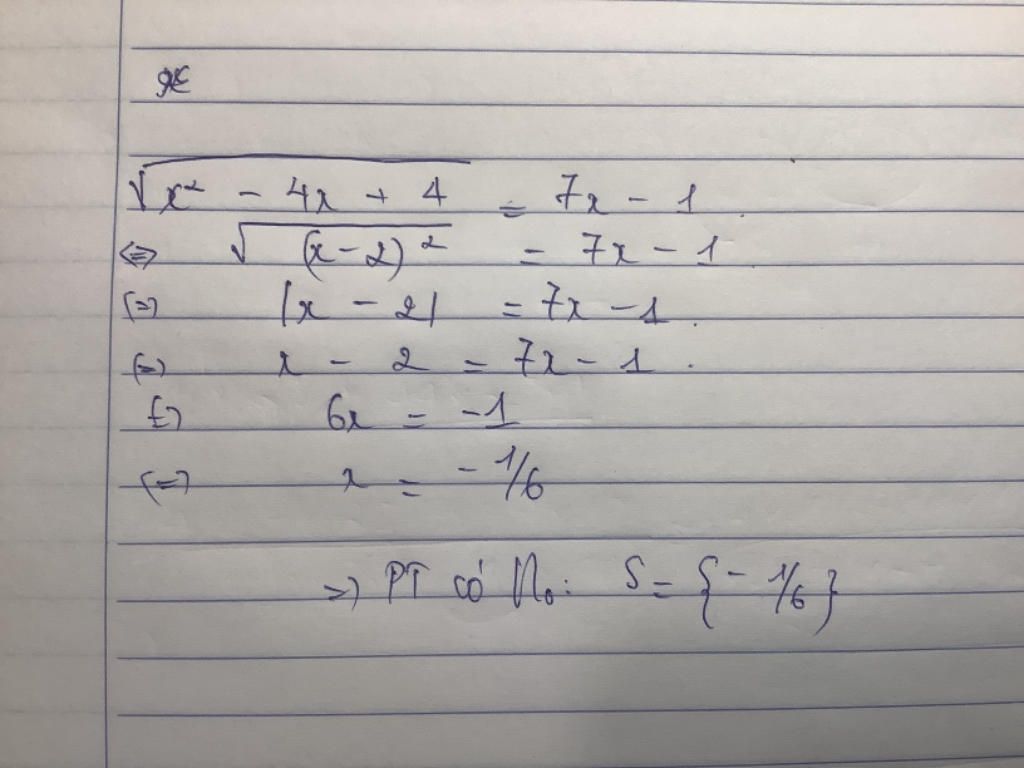 √x² - 4x + 4 = 7x - 1
<=> √(x-2)² = 7x - 1
(=) |x - 2| = 7x - 1.
(=) x - 2 = 7x - 1.
6x = -1
(=) x = -1/6
=) PT có No: S = {-1/6}